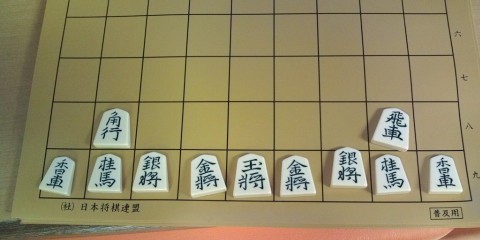 六
七
角行
飛車
八
香車
桂馬
銀將
金將
玉將
金將
銀將
桂馬
香車
九
(社)日本将棋連盟
普及用